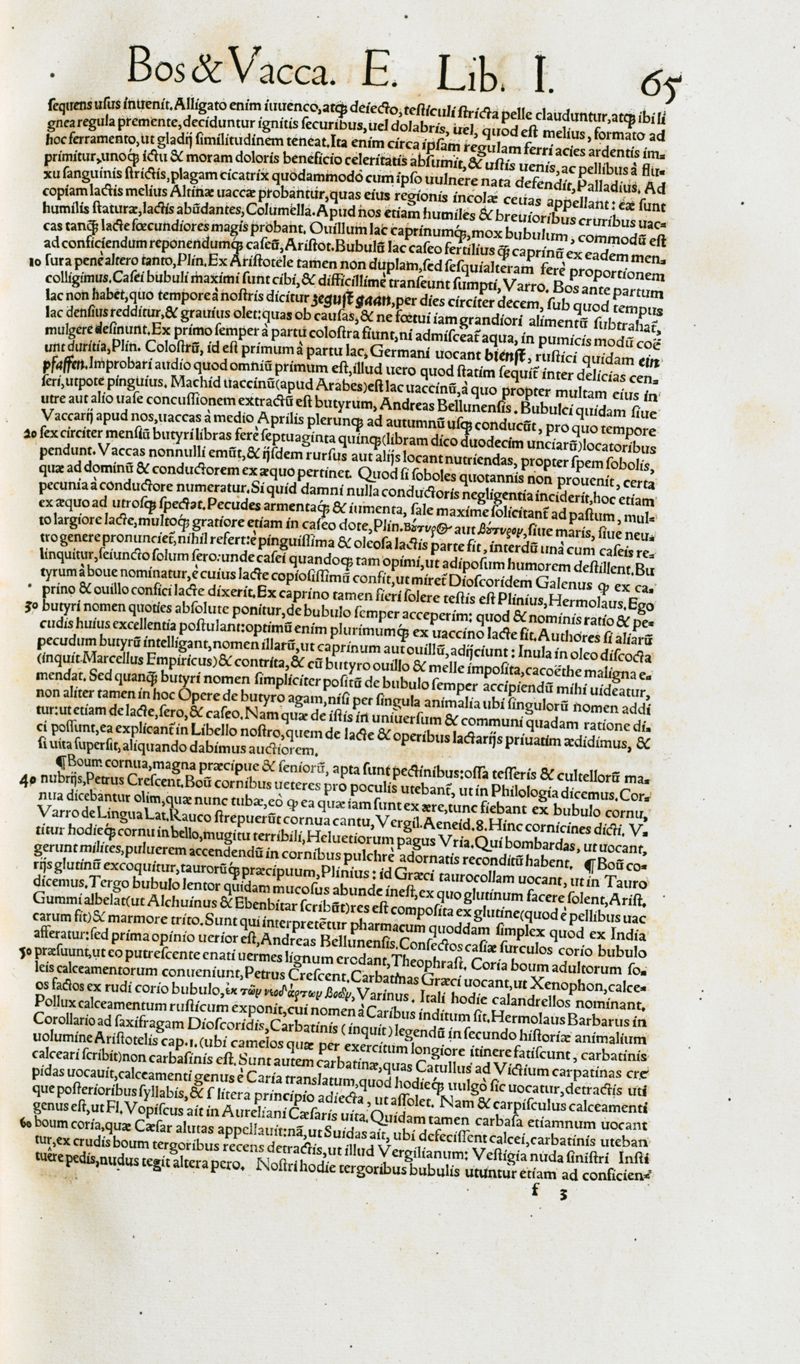 Bos & Vacca. E. Lib. I. 65
ſequens uſus inuenit. Alligato enim iuuenco, atq; deiecto, teſticuli ſtricta pelle clauduntur, atq; ibi li
gnea regula premente, deciduntur ignitis ſecuribus, uel dolabris, uel, quod eſt melius, formato ad
hoc ferramento, ut gladij ſimilitudinem teneat. Ita enim circa ipſam regulam ferri acies ardentis im⸗
primitur, unoq; ictu & moram doloris beneficio celeritatis abſumit, & uſtis uenis, ac pellibus à flu⸗
xu ſanguinis ſtrictis, plagam cicatrix quodammodo cum ipſo uulnere nata defendit, Palladius. Ad
copiam lactis melius Altinæ uaccæ probantur, quas eius regionis incolæ ceuas appellant: eæ ſunt
humilis ſtaturæ, lactis abũdantes, Columella. Apud nos etiam humiles & breuioribus cruribus uac⸗
cas tanq̃ lacte fœcundiores magis probant. Ouillum lac caprinumq;, mox bubulum, commodũ eſt
ad conficiendum reponendumq; caſeũ, Ariſtot. Bubulũ lac caſeo fertilius q̃ caprinũ ex eadem men⸗
10 ſura penè altero tanto, Plin. Ex Ariſtotele tamen non duplam, ſed ſeſquialteram ferè proportionem
colligimus. Caſei bubuli maximi ſunt cibi, & difficillimè tranſeunt ſumpti, Varro. Bos ante partum
lac non habet, quo tempore à noſtris dicitur zeguſt gaan, per dies circiter decem, ſub quod tempus
lac denſius redditur, & grauius olet: quas ob cauſas, & ne fœtui iam grandiori alimentũ ſubtrahat̃,
mulgere deſinunt. Ex primo ſemper à partu coloſtra fiunt, ni admiſceat̃ aqua, in pumicis modũ coë
unt duritia, Plin. Coloſtrũ, id eſt primum à partu lac, Germani uocant bienſt, ruſtici quidam ein
pfaffen. Improbari audio quod omniũ primum eſt, illud uero quod ſtatim ſequit̃ inter delicias cen⸗
ſeri, utpote pinguius. Machid uaccinũ (apud Arabes) eſt lac uaccinũ, à quo propter multam eius in
utre aut alio uaſe concuſſionem extractũ eſt butyrum, Andreas Bellunenſis. Bubulci quidam ſiue
Vaccarij apud nos, uaccas à medio Aprilis plerunq; ad autumnũ uſq; conducũt, pro quo tempore
20 ſex circiter menſiũ butyri libras ferè ſeptuaginta quinq; (libram dico duodecim unciarũ) locatoribus
pendunt. Vaccas nonnulli emũt, & ijſdem rurſus aut alijs locant nutriendas, propter ſpem ſobolis,
quæ ad dominũ & conductorem ex æquo pertinet. Quod ſi ſoboles quotannis non prouenit, certa
pecunia à conductore numeratur. Si quid damni nulla conductoris negligentia inciderit, hoc etiam
ex æquo ad utroſq; ſpectat. Pecudes armentaq; & iumenta, ſale maxime ſolicitant̃ ad paſtum, mul⸗
to largiore lacte, multoq; gratiore etiam in caſeo dote, Plin. Βότυρ@ aut βότυρον, ſiue maris, ſiue neu⸗
tro genere pronunciet̃, nihil refert: è pinguiſſima & oleoſa lactis parte fit, interdũ unà cum caſeis re⸗
linquitur, ſeiuncto ſolum ſero: unde caſei quandoq; tam opimi, ut adipoſum humorem deſtillent. Bu
tyrum à boue nominatur, è cuius lacte copioſiſſimũ confit, ut miret̃ Dioſcoridem Galenus q̃ ex ca⸗
prino & ouillo confici lacte dixerit. Ex caprino tamen fieri ſolere teſtis eſt Plinius, Hermolaus. Ego
30 butyri nomen quoties abſolute ponitur, de bubulo ſemper acceperim: quod & nominis ratio & pe⸗
cudis huius excellentia poſtulant: optimũ enim plurimumq; ex uaccino lacte fit. Authores ſi aliarũ
pecudum butyrũ intelligant, nomen illarũ, ut caprinum aut ouillũ, adijciunt: Inula in oleo diſcocta
(inquit Marcellus Empiricus) & contrita, & cũ butyro ouillo & melle impoſita, cacoëthe maligna e⸗
mendat. Sed quanq̃ butyri nomen ſimpliciter poſitũ de bubulo ſemper accipiendũ mihi uideatur,
non aliter tamen in hoc Opere de butyro agam, niſi per ſingula animalia ubi ſingulorũ nomen addi
tur: ut etiam de lacte, ſero, & caſeo. Nam quæ de iſtis in uniuerſum & communi quadam ratione di⸗
ci poſſunt, ea explicant̃ in Libello noſtro, quem de lacte & operibus lactarijs priuatim ædidimus, &
ſi uita ſuperſit, aliquando dabimus auctiorem.
¶ Boum cornua, magna præcipue & ſeniorũ, apta ſunt pectinibus: oſſa teſſeris & cultellorũ ma⸗
40 nubrijs, Petrus Creſcent. Boũ cornibus ueteres pro poculis utebant̃, ut in Philologia dicemus. Cor⸗
nua dicebantur olim, quæ nunc tubæ, eò q̃ ea quæ iam ſunt ex ære, tunc fiebant ex bubulo cornu,
Varro de Lingua Lat. Rauco ſtrepuerũt cornua cantu, Vergil. Aeneid. 8. Hinc cornicines dicti. V⸗
titur hodieq; cornu in bello, mugitu terribili, Heluetiorum pagus Vria. Qui bombardas, ut uocant,
gerunt milites, puluerem accendendũ in cornibus pulchrè adornatis reconditũ habent. ¶ Boũ co⸗
rijs glutinũ excoquitur, taurorũq; præcipuum, Plinius: id Græci taurocollam uocant, ut in Tauro
dicemus. Tergo bubulo lentor quidam mucoſus abunde ineſt, ex quo glutinum facere ſolent, Ariſt.
Gummi albelat (ut Alchuinus & Ebenbitar ſcribũt) res eſt compoſita ex glutine (quod è pellibus uac
carum fit) & marmore trito. Sunt qui interpretẽtur pharmacum quoddam ſimplex quod ex India
afferatur: ſed prima opinio uerior eſt, Andreas Bellunenſis. Confectos caſiæ ſurculos corio bubulo
50 præſuunt, ut eo putreſcente enati uermes lignum erodant, Theophraſt. Coria boum adultorum ſo⸗
leis calceamentorum conueniunt, Petrus Creſcent. Carbatinas Græci uocant, ut Xenophon, calce⸗
os factos ex rudi corio bubulo, ἐκ τῶν νεοδάρτων βοῶν, Varinus. Itali hodie calandrellos nominant.
Pollux calceamentum ruſticum exponit, cui nomen à Caribus inditum ſit, Hermolaus Barbarus in
Corollario ad ſaxifragam Dioſcoridis, Carbatinis (inquit) legendũ in ſecundo hiſtoriæ animalium
uolumine Ariſtotelis cap. 1. (ubi camelos quæ per exercitum longiore itinere fatiſcunt, carbatinis
calceari ſcribit) non carbaſinis eſt. Sunt autem carbatinæ, quas Catullus ad Victium carpatinas cre
pidas uocauit, calceamenti genus è Caria translatum, quod hodieq; uulgò ſic uocatur, detractis uti
que poſterioribus ſyllabis, & ſ litera principio adiecta, ut aſſolet. Nam & carpiſculus calceamenti
genus eſt, ut Fl. Vopiſcus ait in Aureliani Cæſaris uita. Quidam tamen carbaſa etiamnum uocant
60 boum coria, quæ Cæſar alutas appellauit: nã, ut Suidas ait, ubi defeciſſent calcei, carbatinis uteban
tur, ex crudis boum tergoribus recens detractis, ut illud Vergilianum: Veſtigia nuda ſiniſtri Inſti
tuêre pedis, nudus tegit altera pero. Noſtri hodie tergoribus bubulis utuntur etiam ad conficien⸗
f 3